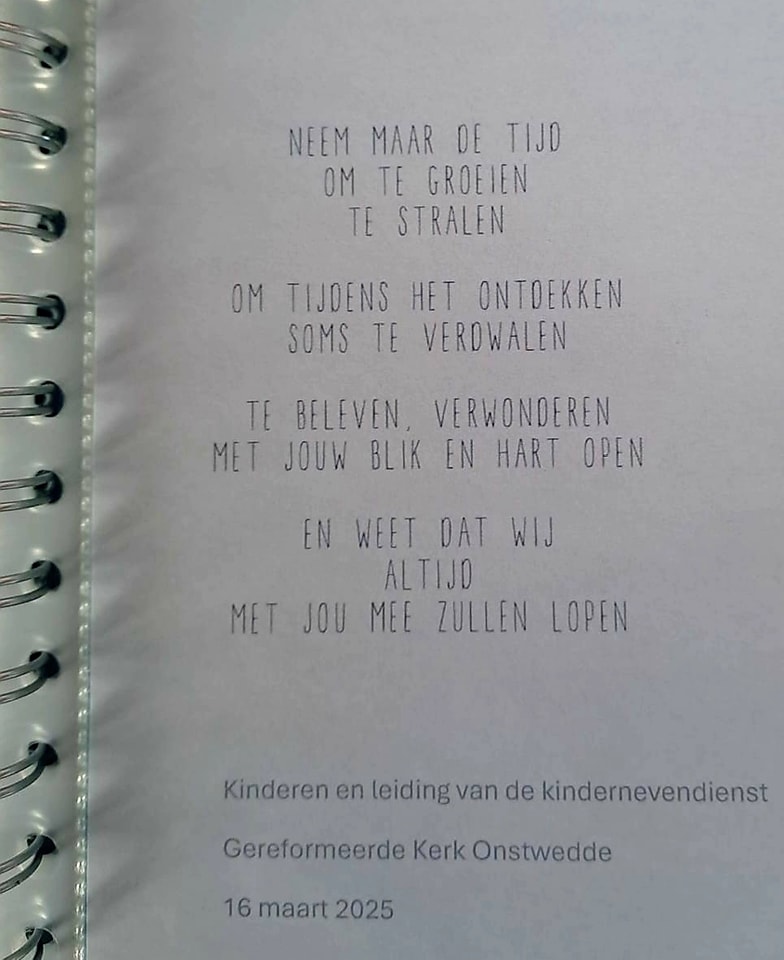 NEEM MAAR DE TIJD
OM TE GROEIEN
TE STRALEN
OM TIJDENS HET ONTDEKKEN
SOMS TE VERDWALEN
TE BELEVEN, VERWONDEREN
MET JOUW BLIK EN HART OPEN
EN WEET DAT WIJ
ALTIJD
MET JOU MEE ZULLEN LOPEN
Kinderen en leiding van de kindernevendienst
Gereformeerde Kerk Onstwedde
16 maart 2025